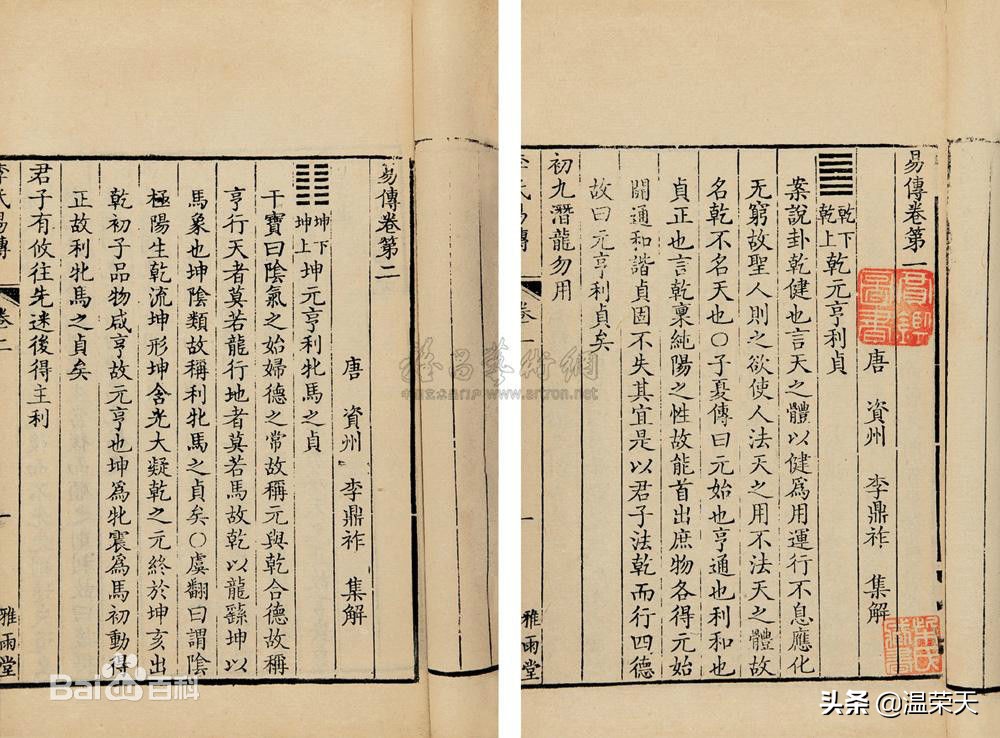 易傳卷第一
唐 資州 李鼎祚 集解
乾下
乾上
乾元亨利貞
案說卦乾健也言天之體以健爲用運行不息應化
无窮故聖人則之欲使人法天之用不法天之體故
名乾不名天也〇子夏傳曰元始也亨通也利和也
貞正也言乾稟純陽之性故能首出庶物各得元始
開通和諧貞固不失其宜是以君子法乾而行四德
故曰元亨利貞矣
初九潛龍勿用
氏易傳 卷一 一 雅雨堂
易傳卷第二
唐 資州 李鼎祚 集解
坤下
坤上
坤元亨利牝馬之貞
干寶曰陰氣之始婦德之常故稱元與乾合德故稱
亨行天者莫若龍行地者莫若馬故乾以龍繇坤以
馬象也坤陰類故稱利牝馬之貞矣〇虞翻曰謂陰
極陽生乾流坤形坤含光大凝乾之元終於坤亥出
乾初子品物咸亨故元亨也坤爲牝震爲馬初動得
正故利牝馬之貞矣
君子有攸往先迷後得主利
李氏易傳 卷二 一 雅雨堂
雅昌藝術網
www.artron.net
Baidu百科
头条 @温荣天